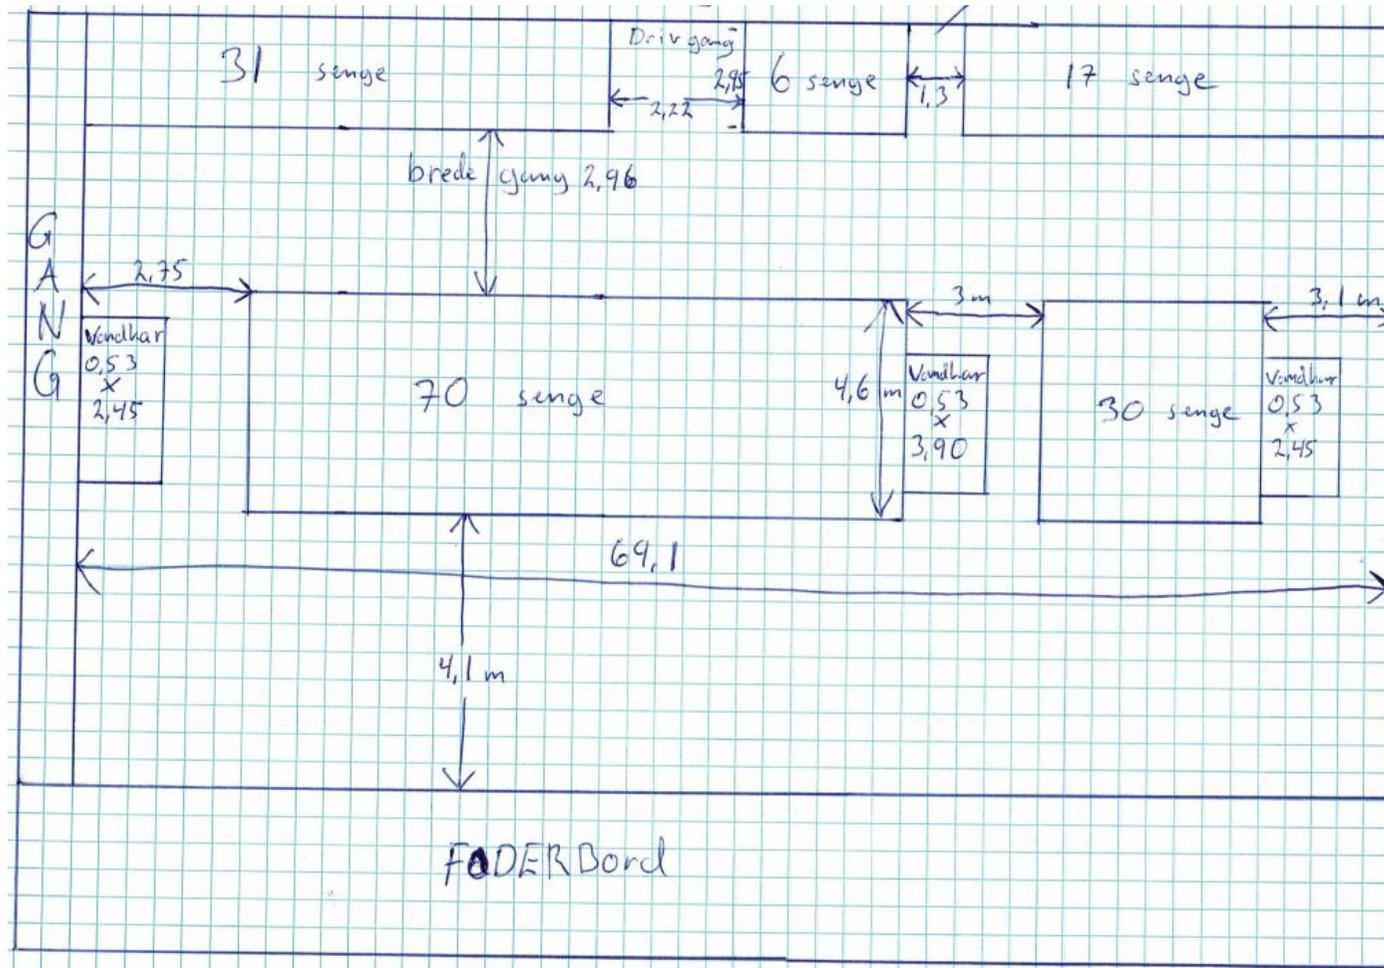 31 senge
Drivgang
2,95
2,22
6 senge
1,3
17 senge
brede gang 2,96
GANG
2,75
3 m
3,1 m
Vandkar
0,53
x
2,45
70 senge
4,6 m
Vandkar
0,53
x
3,90
30 senge
Vandkar
0,53
x
2,45
69,1
4,1 m
FODERBord